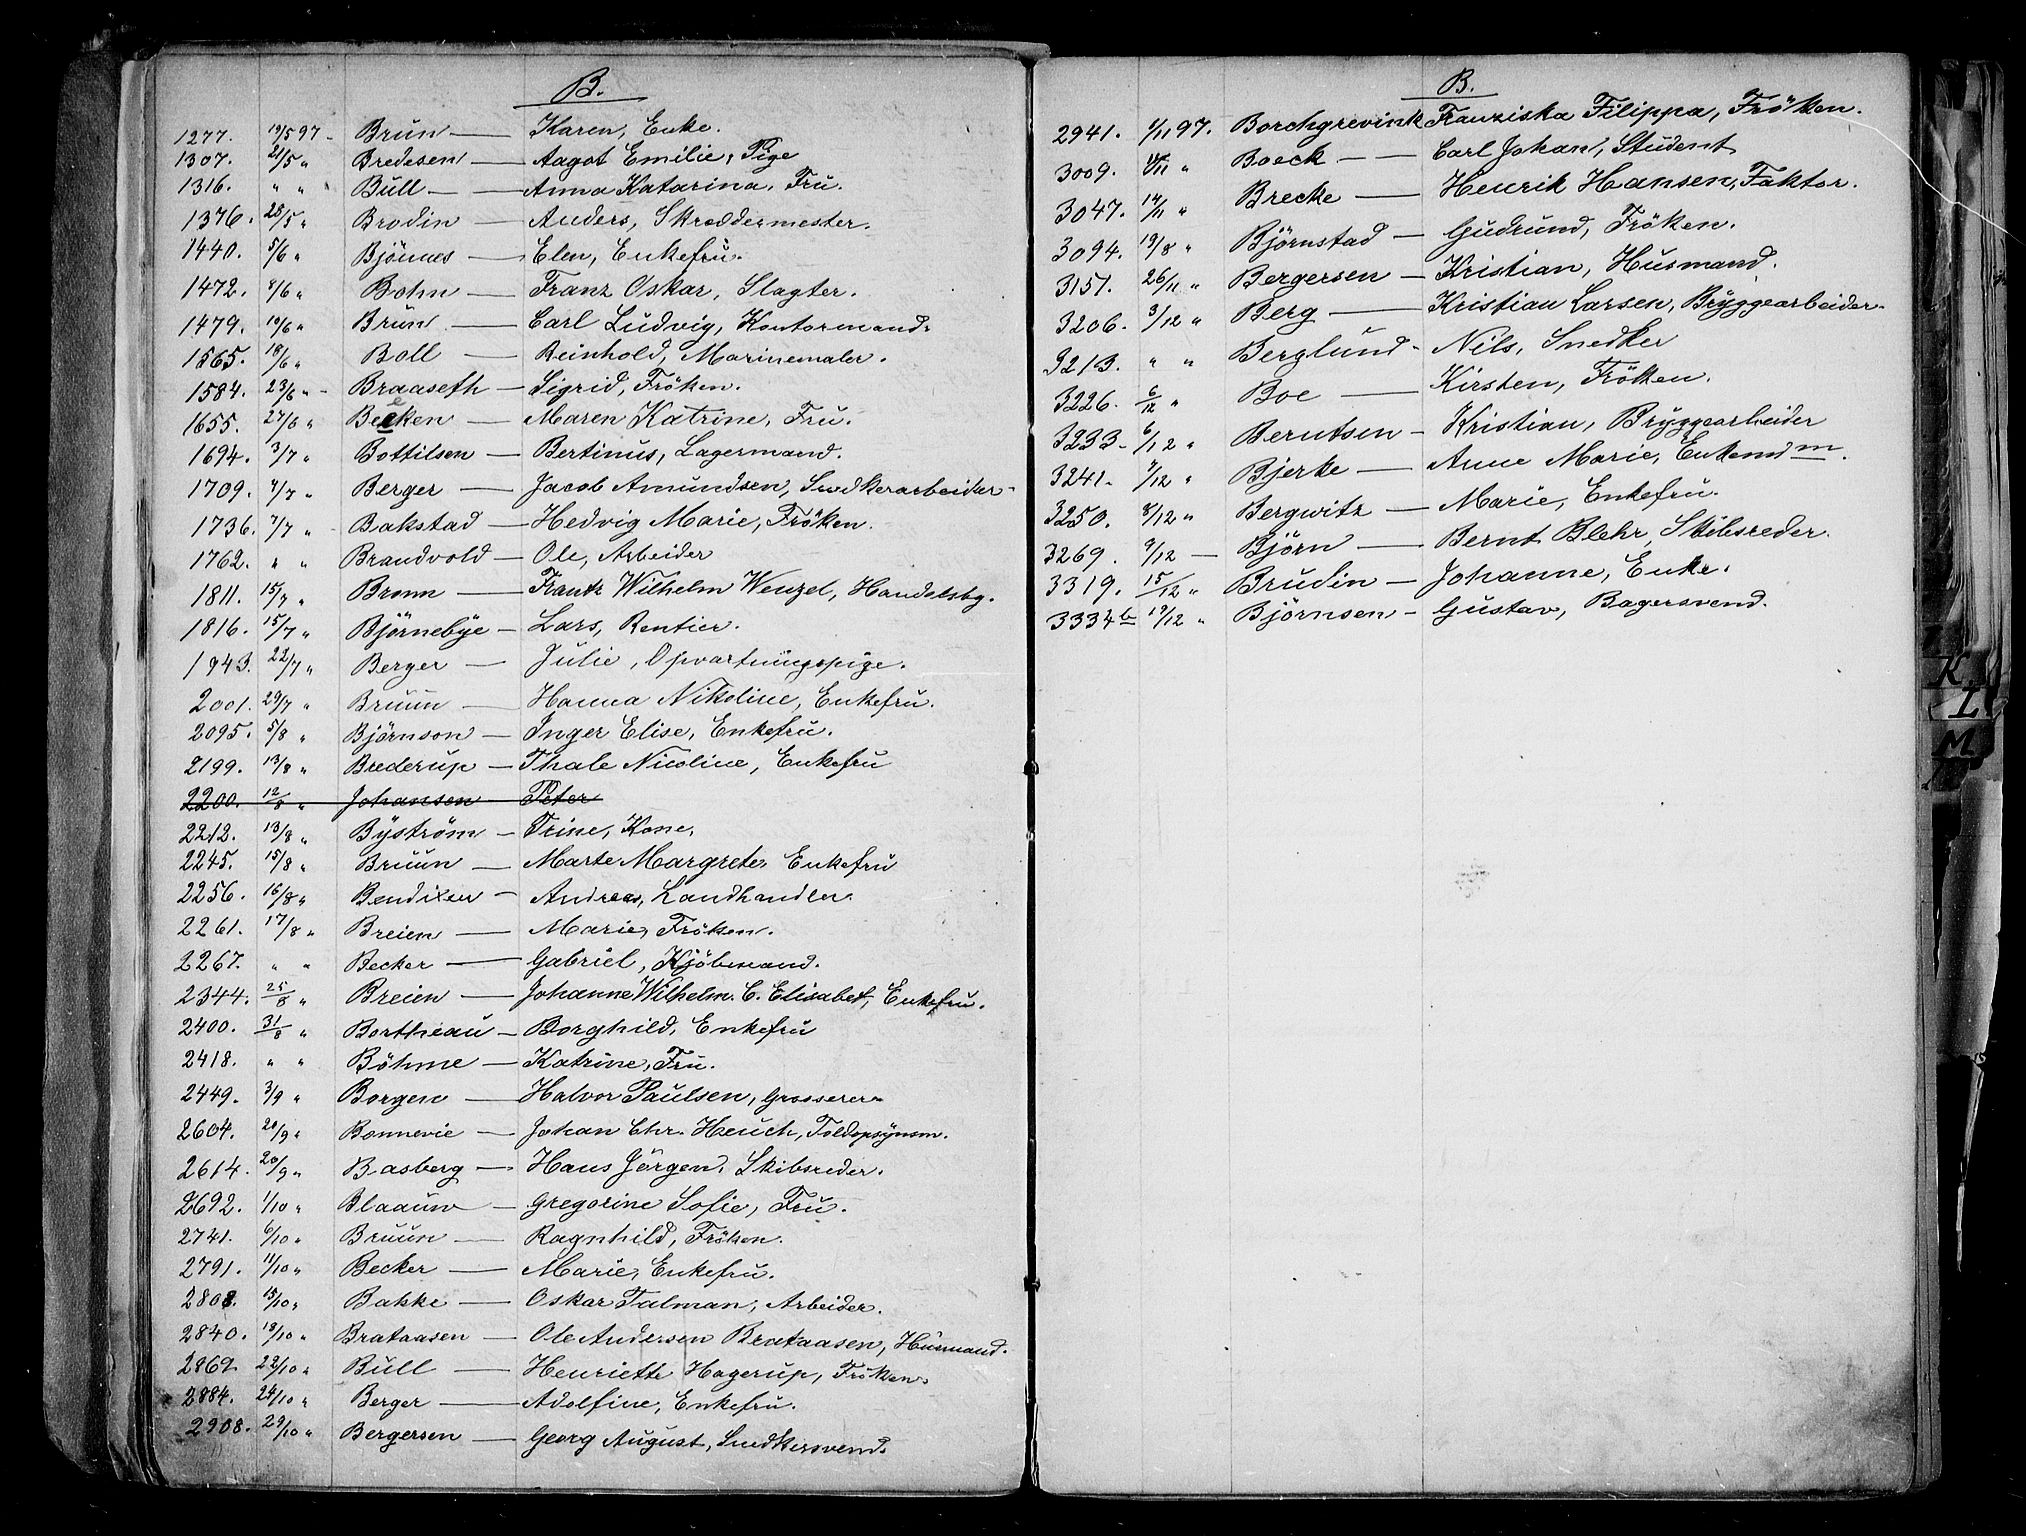 B.
1277. 19/5 97 - Brun — Karen, Enke.
1307. 21/5 " Bredesen — Aagot Emilie, Pige
1316. " " Bull — Anna Katarina, Fru.
1376. 28/5 " Brodin — Anders, Skreddermester.
1440. 5/6 " Bjönnes — Elen, Enkefru.
1472. 8/6 " Bohn — Franz Oskar, Slagter.
1479. 10/6 " Brun — Carl Ludvig, Kontormand.
1565. 18/6 " Boll — Reinhold, Marinemaler.
1584. 23/6 " - Braaseth — Sigrid, Fröken.
1655. 27/6 " Becken — Maren Katrine, Fru.
1694. 3/7 " Bottilsen — Bertinus, Lagermand.
1709. 4/7 " Berger — Jacob Amundsen, Snedkerarbeider
1736. 7/7 " Bakstad — Hedvig Marie, Fröken.
1762. " " Brandvold — Ole, Arbeider
1811. 15/7 " Bronn — Frantz Wilhelm Wenzel, Handelsbg.
1816. 15/7 " Björnebye — Lars, Rentier.
1943. 22/7 " Berger — Julie, Opvartningspige.
2001. 29/7 " Bruun — Hanna Nikoline, Enkefru.
2095. 5/8 " Björnson — Inger Elise, Enkefru.
2199. 13/8 " Brederup — Thale Nicoline, Enkefru
2200. 12/8 " Johansen Peter
2212. 13/8 " Byström — Trine, Kone.
2245. 15/8 " Bruun — Marte Margrete, Enkefru
2256. 16/8 " Bendixen — Andreas, Landhandler.
2261. 17/8 " Breien — Marie, Fröken.
2267. " " Becker — Gabriel, Kjöbmand.
2344. 25/8 " Breien — Johanne Wilhelm. C. Elisabet, Enkefru.
2400. 31/8 " Bortheau — Borghild, Enkefru
2418. " " Böhme — Katrine, Fru.
2449. 3/9 " Borgen — Halvor Paulsen, Grosserer
2604. 20/9 " Bonnevie — Johan Chr. Heuch, Toldopsynsm.
2614. 20/9 " Basberg — Hans Jörgen, Skibsreder.
2692. 1/10 " Blaauw — Gregorine Sofie, Fru.
2741. 6/10 " Bruun — Ragnhild, Fröken.
2791. 11/10 " Becker — Marie, Enkefru.
2808. 15/10 " Bakke — Oskar Talman, Arbeider.
2840. 18/10 " Brataasen — Ole Andersen Brataasen, Husmand.
2869 22/10 " Bull — Henriette Hagerup, Fröken.
2884. 24/10 " Berger — Adolfine, Enkefru.
2908. 29/10 " Bergersen — Georg August, Snedkersvend.
B.
2941. 1/11 97. Borchgrevink Franziska Filippa, Fröken.
3009. 11 " Boeck — Carl Johan, Student
3047. 14/11 " Brecke — Henrik Hansen, Faktor.
3094. 19/8 " Björnstad — Gudrund, Fröken.
3151. 26/11 " Bergersen — Kristian, Husmand.
3206. 3/12 " Berg — Kristian Larsen, Bryggearbeider
3213. " " Berglund - Nils, Snedker
3226. 6/12 " Boe — Kirsten, Fröken.
3233 - 6/12 " Berntsen — Kristian, Bryggearbeider
3241. 7/12 " Bjerke — Anne Marie, Enkemdm.
3250. 8/12 " Bergwitz — Marie, Enkefru.
3269. 9/12 — Björn — Bernt Blehr, Skibsreder.
3319. 15/12 " Brudin — Johanne, Enke.
3334b 19/12 " Björnsen - Gustav, Bagersvend.
K
L
M